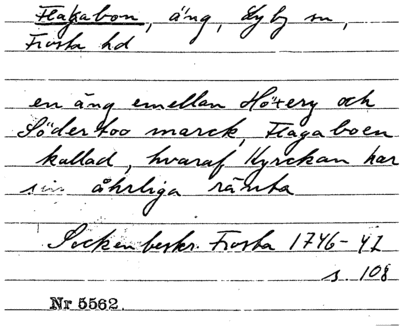 Flakabon, äng, Lyby sn,
Frosta hd
en äng emellan Hötery och
Södertoo marck, Flagaboen
kallad, hvaraf Kyrckan har
sin åhrliga ränta
Sockenbeskr. Frosta 1746-47
s. 108
Nr 5562.